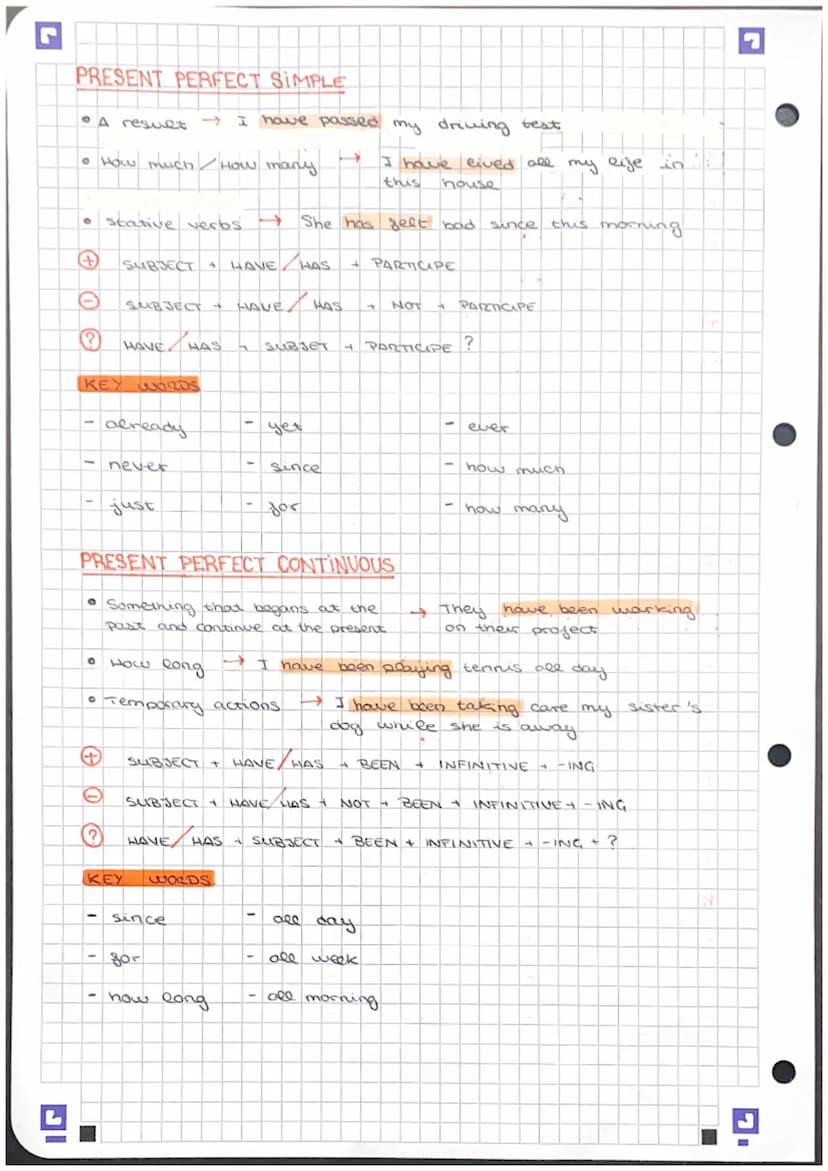 PRESENT PERFECT SIMPLE
• A result → I have passed my driving test
• How much / How many → I have lived all my life in
this house
• stative verbs → She has felt bad since this morning
+ SUBJECT + HAVE / HAS + PARTICIPE
- SUBJECT + HAVE / HAS + NOT + PARTICIPE
? HAVE / HAS + SUBJET + PARTICIPE ?
KEY WORDS
- already - yet - ever
- never - since - how much
- just - for - how many
PRESENT PERFECT CONTINUOUS
• Something that begans at the → They have been working
past and continue at the present on their project
• How long → I have been playing tennis all day
• Temporary actions → I have been taking care my sister's
dog while she is away
+ SUBJECT + HAVE / HAS + BEEN + INFINITIVE + -ING
- SUBJECT + HAVE / HAS + NOT + BEEN + INFINITIVE + -ING
? HAVE / HAS + SUBJECT + BEEN + INFINITIVE + -ING + ?
KEY WORDS
- since - all day
- for - all week
- how long - all morning